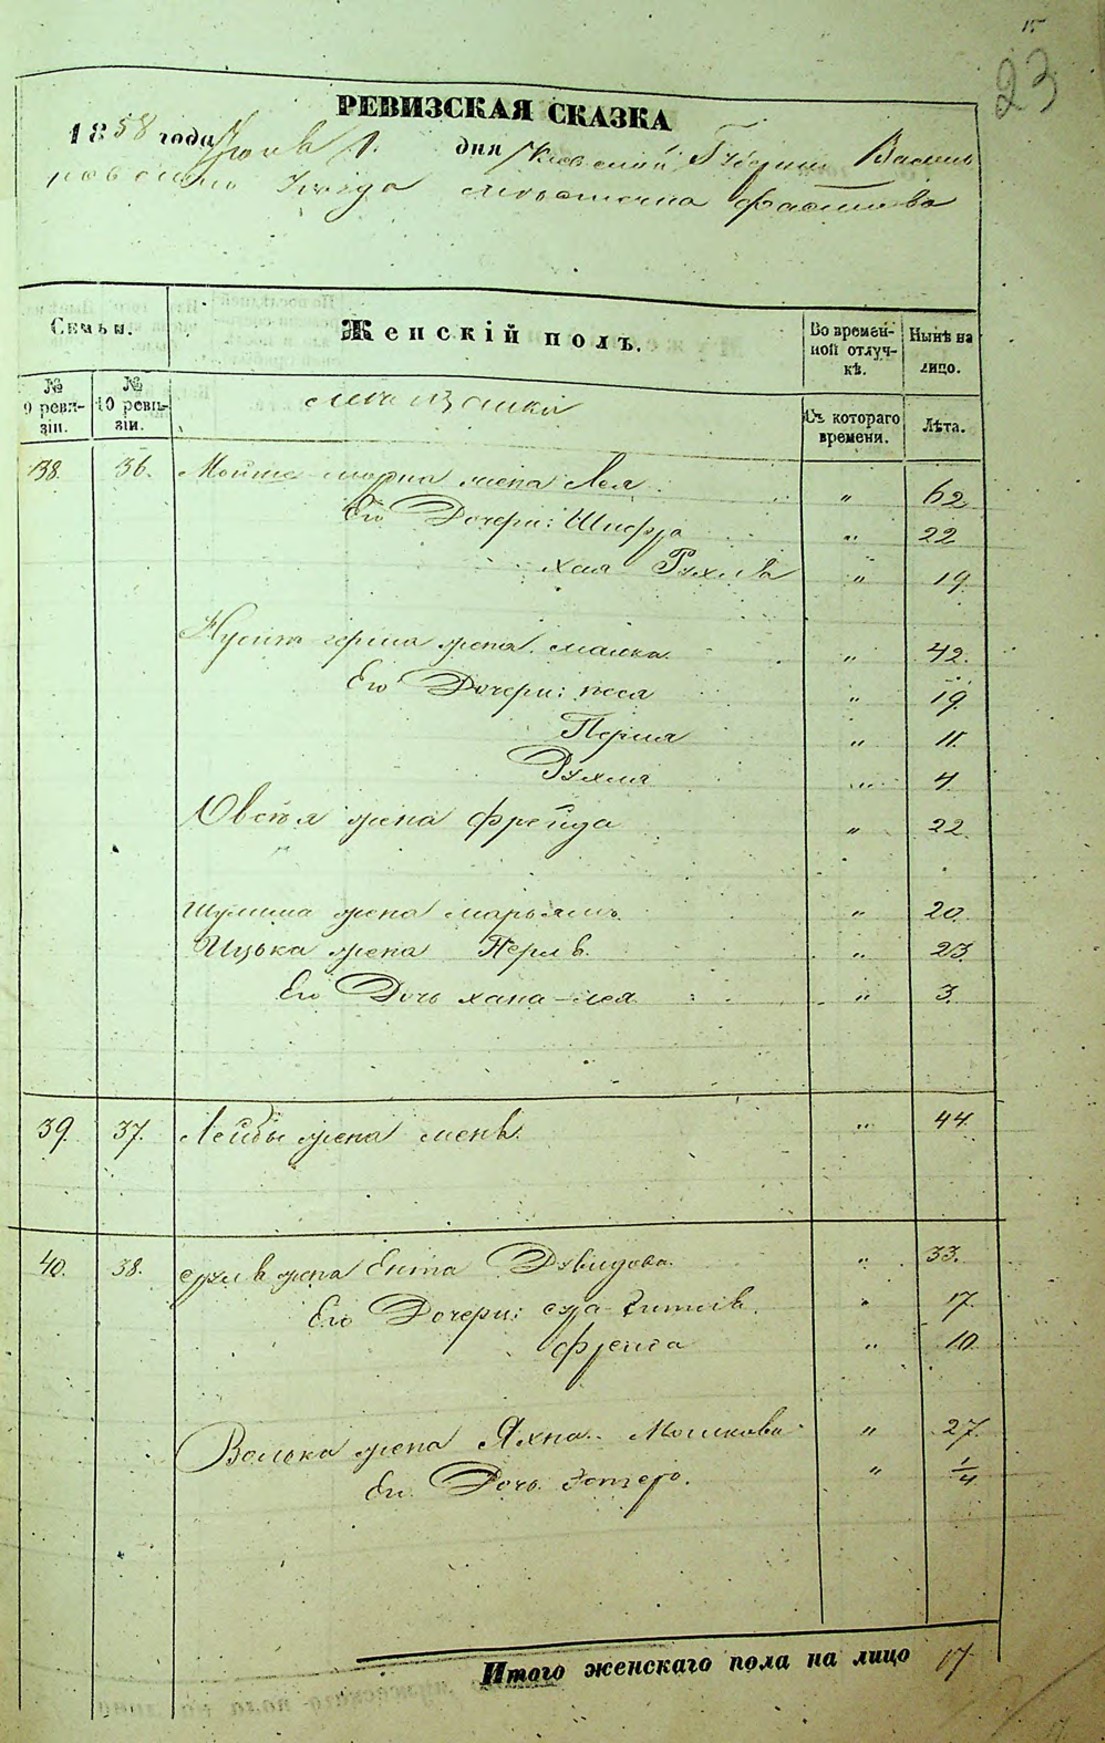 15
23
РЕВИЗСКАЯ СКАЗКА
1858 года Июня 1. дня Кіевской Губерніи Василь
ковскаго Уѣзда мѣстечка Фастова
Семьи.
Женскій полъ.
Во времен-
ной отлуч-
кѣ.
Нынѣ на
лицо.
№
9 реви-
зіи.
№
10 реви-
зіи.
Съ котораго
времени.
Лѣта.
38. 36. Мошка жена Лея " 62
Его Дочери: Шифра " 22
Хая Рухля " 19.
Нусина герша жена малка " 42.
Его Дочери: песя " 19.
Перля " 11.
Рухля " 4.
Овсѣя жена фрейда " 22.
Шулима жена марьямъ " 20.
Ицька жена Перлѣ. " 23.
Его Дочь хана-лея " 3.
39. 37. Лейбы жена менѣ. " 44.
40. 38. жена Ента Дувидова. " 33.
Его Дочери: сура " 17.
фрейда " 10.
Волька жена Яхна Мошкова " 27.
Его Дочь Эстеръ. " 1/4
Итого женскаго пола на лицо 17